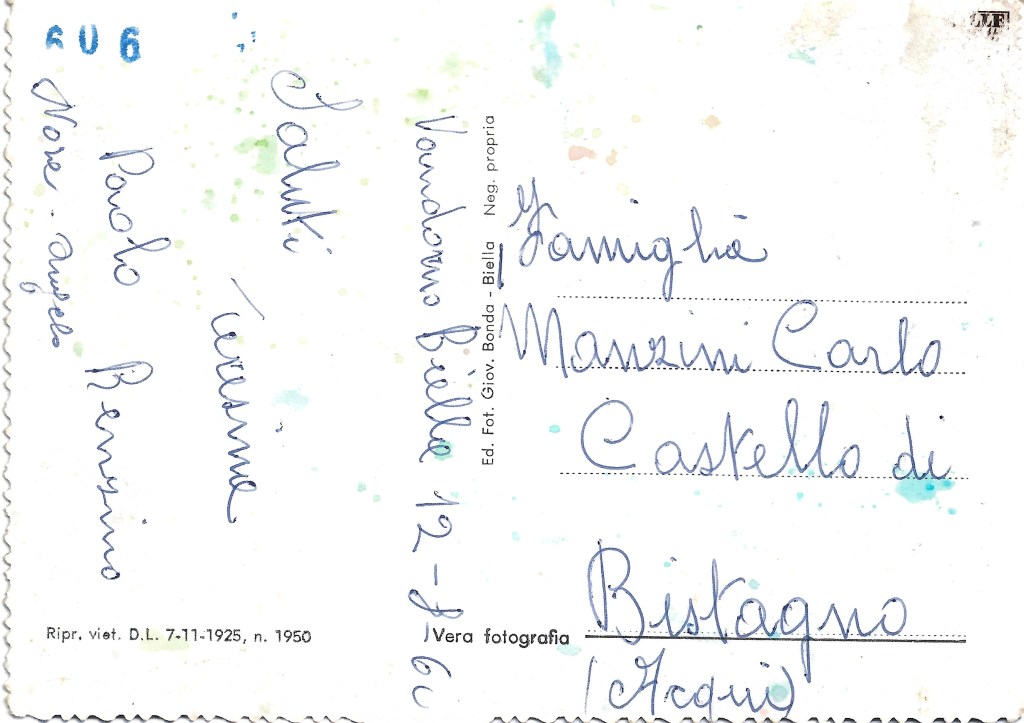 6U6
Vandorno Biella 12-8-60
Saluti
Teresina
Paolo Bensino
Nose. Angelo
Ed. Fot. Giov. Bonda - Biella Neg. propria
Famiglia
Manzini Carlo
Castello di
Bistagno
(Acqui)
Ripr. viet. D.L. 7-11-1925, n. 1950
Vera fotografia